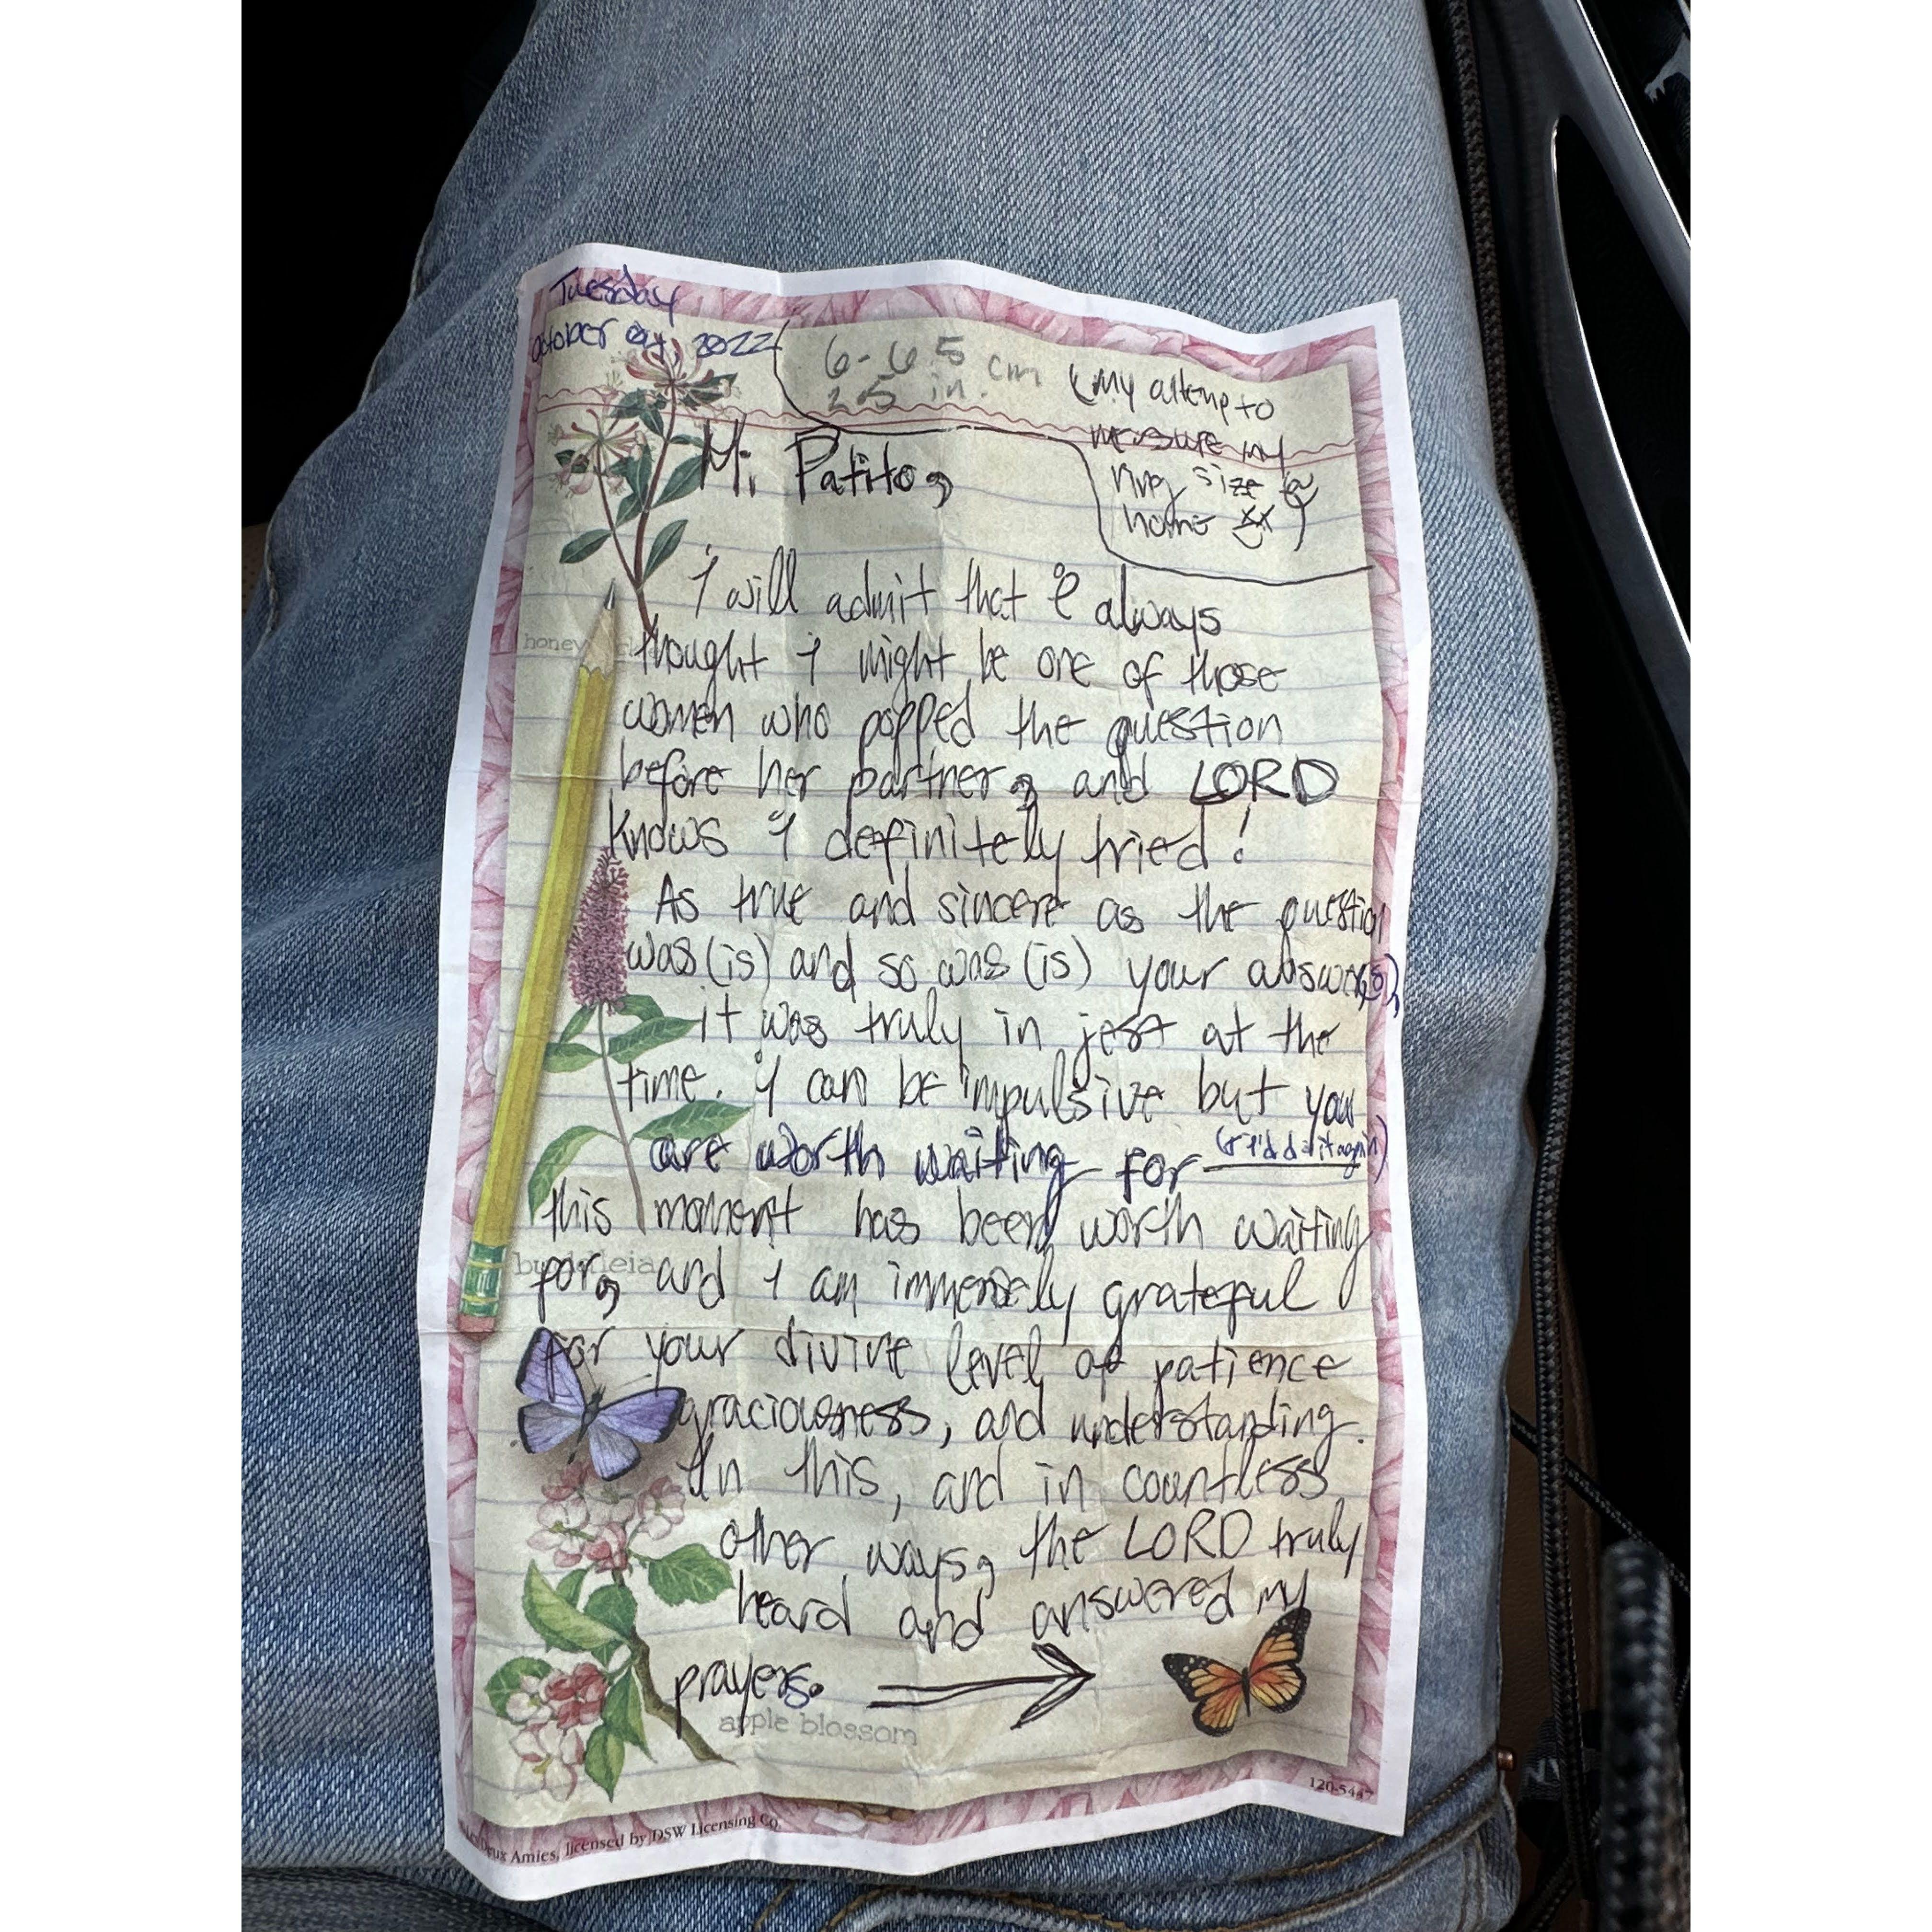 Tuesday
October 04, 2022
6-6.5 cm
2.5 in.
(my attempt to
measure my
ring size @
home
Mi Patito,
I will admit that I always
honey
thought I might be one of those
women who popped the question
before her partner, and LORD
knows I definitely tried!
As true and sincere as the question
was (is) and so was (is) your answer(s),
it was truly in jest at the
time. I can be impulsive but you
are worth waiting for (& I'd do it again)
this moment has been worth waiting
buddleia
for, and I am immensely grateful
for your divine level of patience
graciousness, and understanding.
In this, and in countless
other ways, the LORD truly
heard and answered my
prayers. →
apple blossom
120-5447
Deux Amies, licensed by DSW Licensing Co.